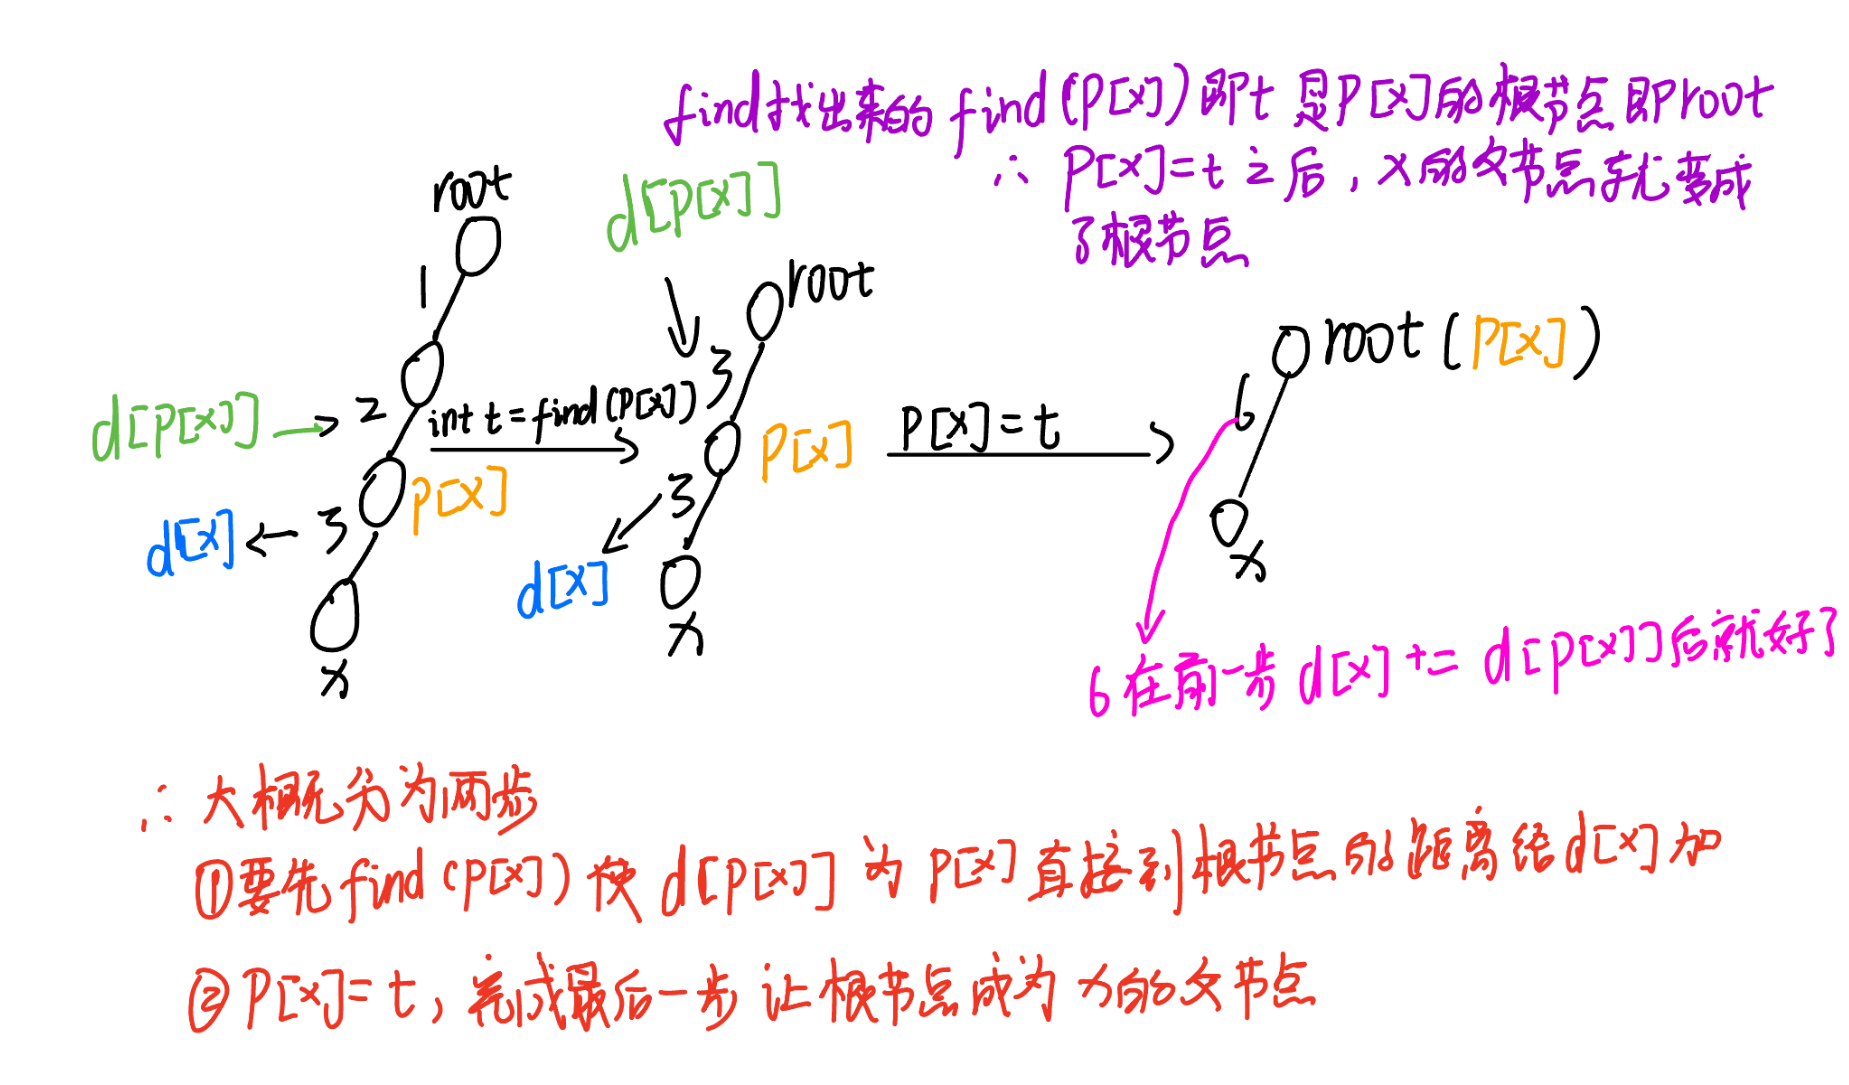 find找出来的 find(P[x])即t 是P[x]的根节点即Proot
∴ P[x]=t 之后，x的父节点就变成
了根节点
root
1
d[P[x]]
2
P[x]
d[x]
3
x
int t=find(P[x])
d[P[x]]
root
3
P[x]
3
d[x]
x
P[x]=t
root(P[x])
6
x
6在前一步 d[x] += d[P[x]]后就好了
∴ 大概分为两步
①要先find(P[x])使 d[P[x]] 为 P[x]直接到根节点的距离给d[x]加
②P[x]=t，完成最后一步 让根节点成为x的父节点